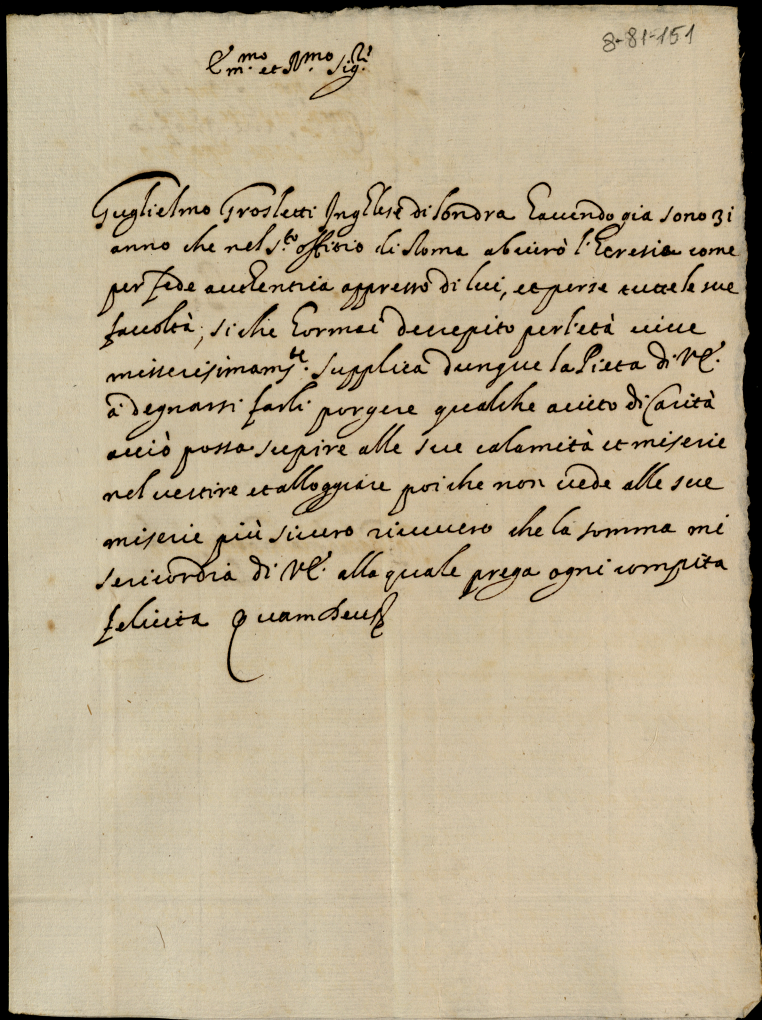 8-81-151
E.mo et R.mo Sig.r
Guglielmo Grosletti Inglese di londra havendo gia sono 31
anno che nel s.to offitio di Roma abiurò l'heresia come
per fede authentica appresso di lui, et perse tutte le sue
facoltà, si che hormai decrepito per l'età vive
miserisimam.te. Supplica dunque la Pieta di V.E.
à degnarsi farli porgere qualche aiuto di Carità
acciò possa supire alle sue calamità et miserie
nel vestire et alloggiare poi che non vede alle sue
miserie più sicuro ricuvero che la somma mi
sericordia di V.E. alla quale prega ogni compita
felicita Quam Deus